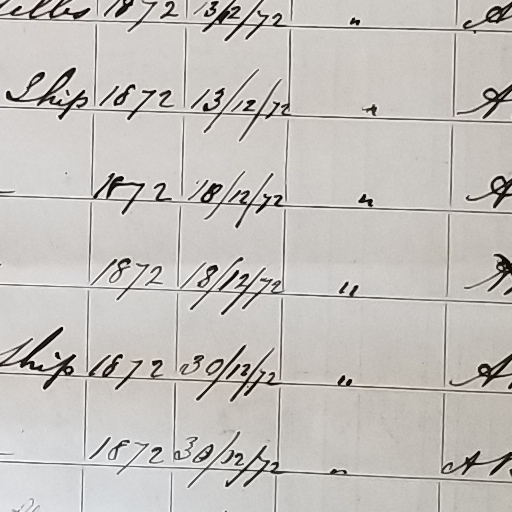 1872 13/12/72 "
Ship 1872 13/12/72 " A
1872 18/12/72 " A
1872 18/12/72 "
Ship 1872 30/12/72 " A
1872 30/12/72 " A